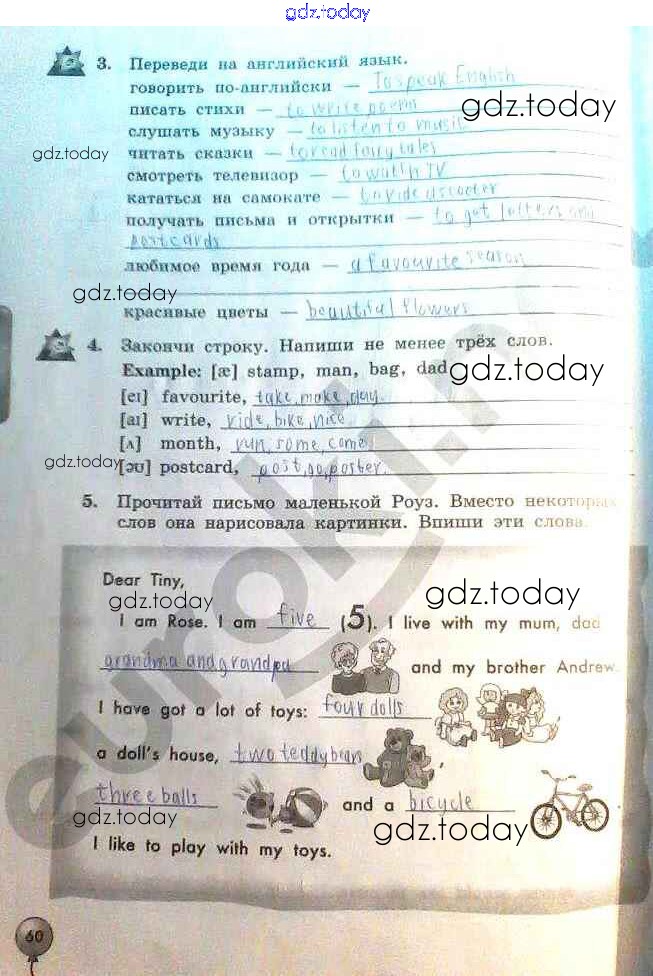 gdz.today
3. Переведи на английский язык.
говорить по-английски — To speak English
писать стихи — to write poem
gdz.today
слушать музыку — to listen to music
gdz.today
читать сказки — to read fairy tales
смотреть телевизор — to watch TV
кататься на самокате — to ride a scooter
получать письма и открытки — to get letters and
postcards
любимое время года — a favourite season
gdz.today
красивые цветы — beautiful flowers
4. Закончи строку. Напиши не менее трёх слов.
Example: [æ] stamp, man, bag, dad
gdz.today
[eɪ] favourite, take, make, day.
[aɪ] write, ride, bike, nice
[ʌ] month, run, some, come
gdz.today
[əʊ] postcard, post, go, poster.
5. Прочитай письмо маленькой Роуз. Вместо некоторых
слов она нарисовала картинки. Впиши эти слова.
Dear Tiny,
gdz.today
gdz.today
I am Rose. I am five (5). I live with my mum, dad
grandma and grandpa and my brother Andrew.
I have got a lot of toys: four dolls
a doll's house, two teddy bears,
three balls and a bicycle
gdz.today
gdz.today
I like to play with my toys.
60
euroki.n